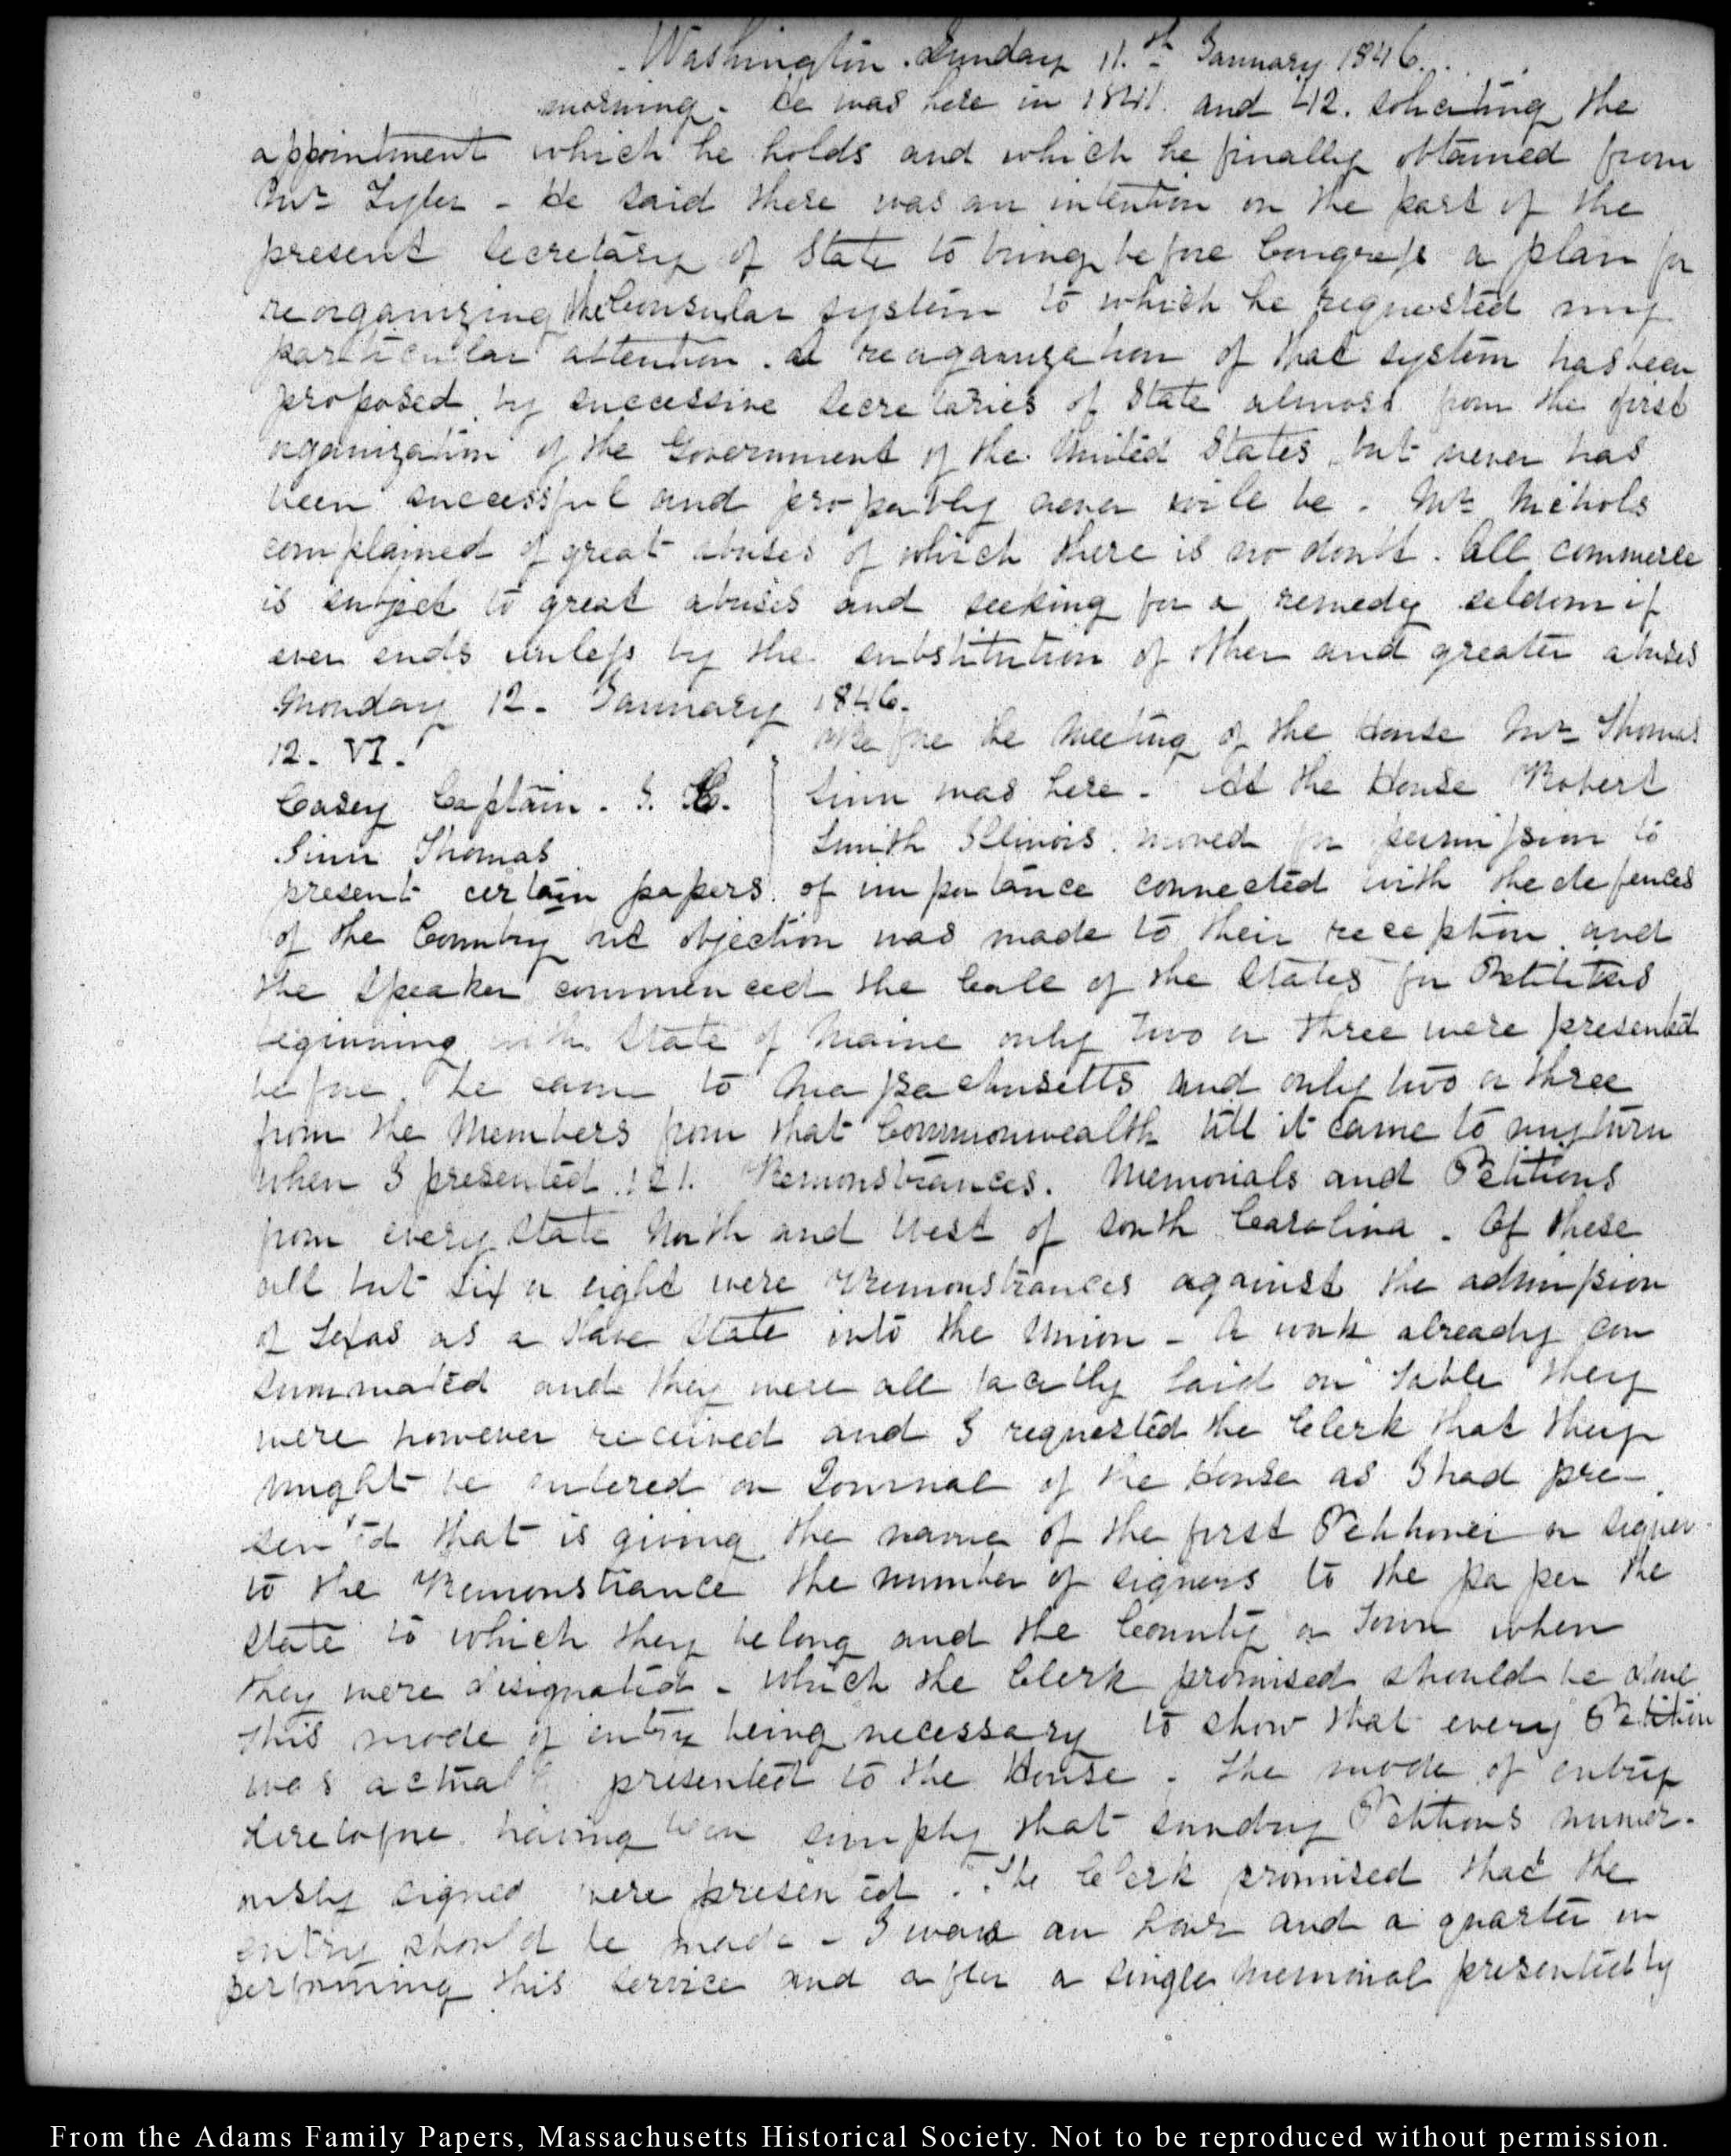 Washington. Sunday 11.th January 1846.
morning. He was here in 1841. and 42. soliciting the
appointment which he holds and which he finally obtained from
Mr Tyler - He said there was an intention on the part of the
present Secretary of State to bring before Congress a plan for
reorganizing the Consular system to which he requested my
particular attention. A reorganization of that system has been
proposed by successive Secretaries of State almost from the first
organization of the Government of the United States, but never has
been successful and propably never will be. Mr Nichols
complained of great abuses of which there is no doubt. All commerce
is subject to great abuses and seeking for a remedy seldom if
ever ends unless by the substitution of other and greater abuses
Monday 12. January 1846.
12. VI.
Casey Captain. J. C.
Sinn Thomas
Before the Meeting of the House Mr Thomas
Sinn was here. At the House Robert
Smith Illinois moved for permission to
present certain papers of importance connected with the defences
of the Country but objection was made to their reception and
the Speaker commenced the Call of the States for Petitions
beginning with State of Maine only two or three were presented
before he came to Massachusetts and only two or three
from the Members from that Commonwealth till it came to my turn
when I presented 121. Remonstrances. Memorials and Petitions
from every State North and West of South Carolina. Of these
all but six or eight were Remonstrances against the admission
of Texas as a Slave State into the Union - A work already con
summated and they were all tacitly laid on table they
were however received and I requested the Clerk that they
might be entered on Journal of the House as I had pre-
sented that is giving the name of the first Petitioner or signer
to the Remonstrance the number of signers to the paper the
State to which they belong and the County or Town when
they were designated - which the Clerk promised should be done
this mode of entry being necessary to show that every Petition
was actually presented to the House. The mode of entry
heretofore having been simply that sundry Petitions numer-
ously signed were presented. The Clerk promised that the
entry should be made - I was an hour and a quarter in
performing this service and after a single memorial presented by
From the Adams Family Papers, Massachusetts Historical Society. Not to be reproduced without permission.